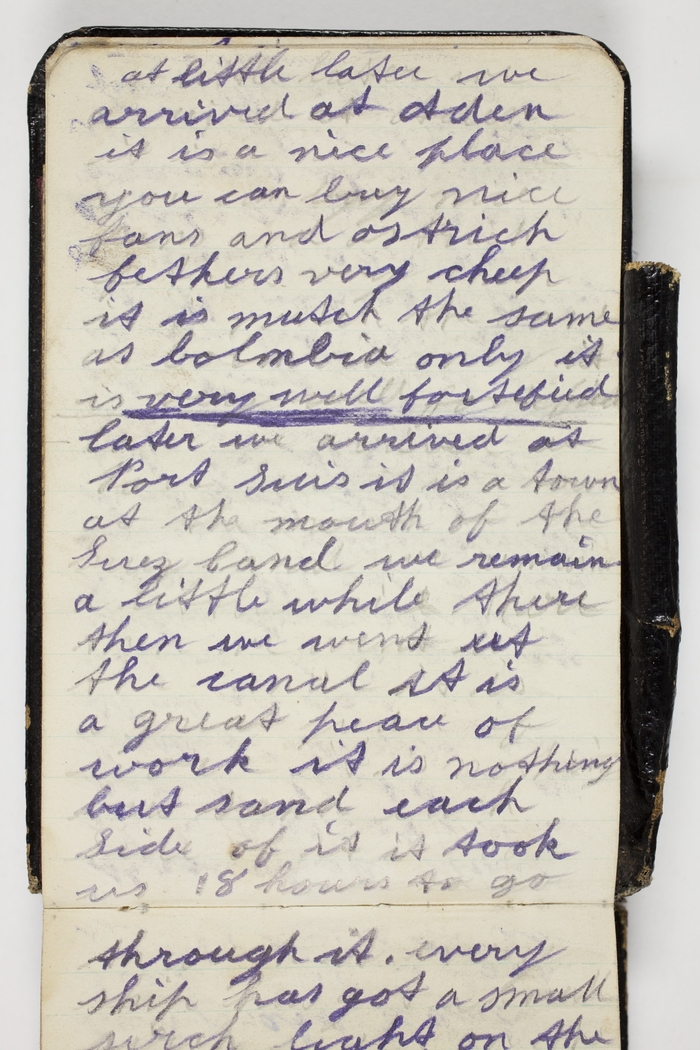 at little later we
arrived at Aden
it is a nice place
you can buy nice
fans and ostrich
fethers very cheep
it is mutch the same
as Colmbia only it
is very well fortefied
later we arrived at
Port Suis it is a town
at the mouth of the
Suez Canal we remain
a little while there
then we went up
the canal it is
a great peace of
work it is nothing
but sand each
side of it it took
us 18 hours to go
through it. every
ship has got a small
serch light on the